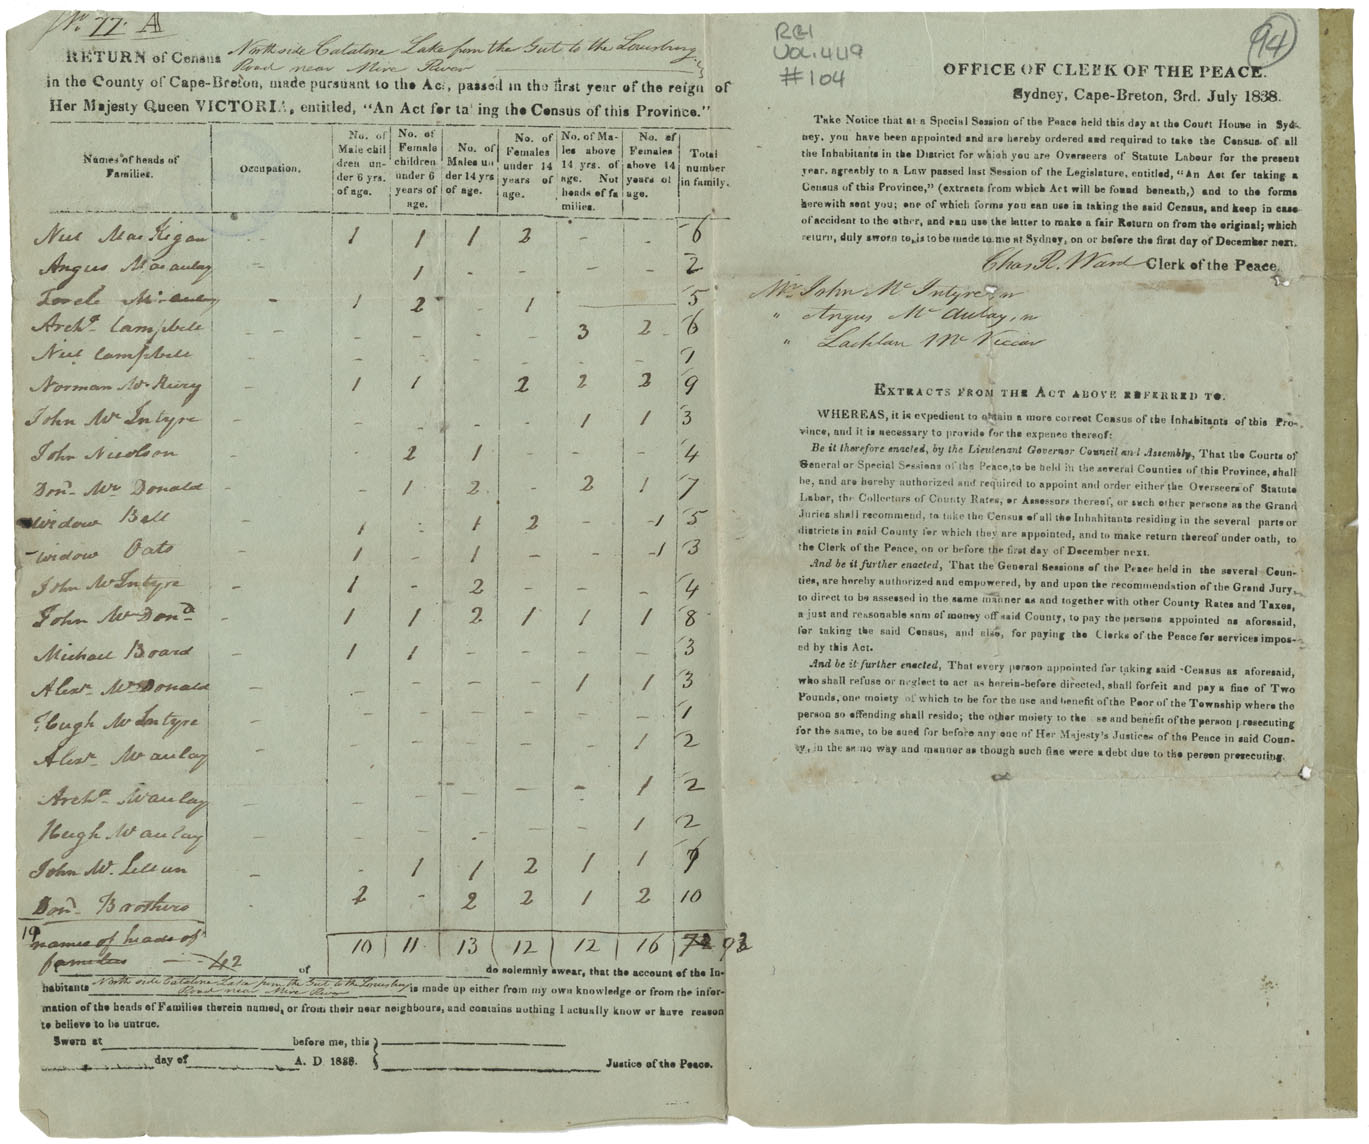 No. 77. A
RETURN of Census North side Catalone Lake from the Gut to the Louisburg
Road near Mire River
in the County of Cape-Breton, made pursuant to the Act, passed in the first year of the reign of
Her Majesty Queen VICTORIA, entitled, "An Act for taking the Census of this Province."
Names of heads of Families. | Occupation. | No. of Male children under 6 yrs. of age. | No. of Female children under 6 years of age. | No. of Males under 14 yrs of age. | No. of Females under 14 years of age. | No. of Males above 14 yrs. of age. Not heads of families. | No. of Females above 14 years of age. | Total number in family.
Niel MacKigan - 1 1 1 2 - - 6
Angus Macaulay - 1 2
Mcaulay - 1 2 1 5
Archd. Campbell - - - - - 3 2 6
Niel Campbell - - - - - 1
Norman McKury - 1 1 2 2 2 9
John McIntyre - - - - - 1 1 3
John Nicolson - - 2 1 - - - 4
Dond. McDonald - - 1 2 - 2 1 7
Widow Ball 1 - 1 2 - -1 5
Widow Oats 1 - 1 - - -1 3
John McIntyre - 1 - 2 - - - 4
John McDond. - 1 1 2 1 1 1 8
Michael Board - 1 1 - - - - 3
Alexr. McDonald - - - - - 1 1 3
Hugh McIntyre - - - - - - - 1
Alexr. Mcaulay - - - - - 1 2
Archd. Mcaulay - - - - - 1 2
Hugh Mcaulay - - - - - - 1 2
John McLellun - - 1 1 2 1 1 7
Dond. Brothers - 2 - 2 2 1 2 10
19 names of heads of
families - 42
10 11 13 12 12 16 72 92
of do solemnly swear, that the account of the In-
habitants North side Catalone Lake from the Gut to the Louisburg
Road near Mire River is made up either from my own knowledge or from the infor-
mation of the heads of Families therein named, or from their near neighbours, and contains nothing I actually know or have reason
to believe to be untrue.
Sworn at before me, this }
day of A. D. 1838. } Justice of the Peace.
RG1
VOL. 449
#104
94
OFFICE OF CLERK OF THE PEACE.
Sydney, Cape-Breton, 3rd. July 1838.
Take Notice that at a Special Session of the Peace held this day at the Court House in Syd-
ney, you have been appointed and are hereby ordered and required to take the Census of all
the Inhabitants in the District for which you are Overseers of Statute Labour for the present
year, agreably to a Law passed last Session of the Legislature, entitled, "An Act for taking a
Census of this Province," (extracts from which Act will be found beneath,) and to the forms
herewith sent you; one of which forms you can use in taking the said Census, and keep in case
of accident to the other, and can use the latter to make a fair Return on from the original; which
return, duly sworn to, is to be made to me at Sydney, on or before the first day of December next.
Chas R. Ward Clerk of the Peace.
Mr. John McIntyre
" Angus McAulay
" Lachlan McViccar
EXTRACTS FROM THE ACT ABOVE REFERRED TO.
WHEREAS, it is expedient to obtain a more correct Census of the Inhabitants of this Pro-
vince, and it is necessary to provide for the expence thereof:
Be it therefore enacted, by the Lieutenant Governor Council and Assembly, That the Courts of
General or Special Sessions of the Peace, to be held in the several Counties of this Province, shall
be, and are hereby authorized and required to appoint and order either the Overseers of Statute
Labor, the Collectors of County Rates, or Assessors thereof, or such other persons as the Grand
Juries shall recommend, to take the Census of all the Inhabitants residing in the several parts or
districts in said County for which they are appointed, and to make return thereof under oath, to
the Clerk of the Peace, on or before the first day of December next.
And be it further enacted, That the General Sessions of the Peace held in the several Coun-
ties, are hereby authorized and empowered, by and upon the recommendation of the Grand Jury,
to direct to be assessed in the same manner as and together with other County Rates and Taxes,
a just and reasonable sum of money off said County, to pay the persons appointed as aforesaid,
for taking the said Census, and also, for paying the Clerks of the Peace for services impos-
ed by this Act.
And be it further enacted, That every person appointed for taking said Census as aforesaid,
who shall refuse or neglect to act as herein-before directed, shall forfeit and pay a fine of Two
Pounds, one moiety of which to be for the use and benefit of the Poor of the Township where the
person so offending shall reside; the other moiety to the use and benefit of the person prosecuting
for the same, to be sued for before any one of Her Majesty's Justices of the Peace in said Coun-
ty, in the same way and manner as though such fine were a debt due to the person prosecuting.